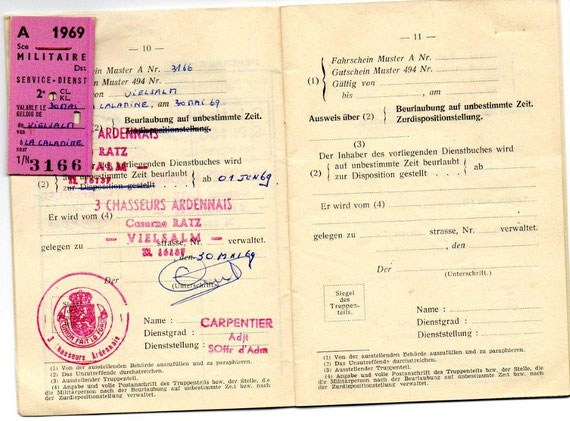 A 1969
Sce
MILITAIRE
Dst
SERVICE-DIENST
2e CL
KL
VALABLE LE 30 MAI
GELDIG DE
de VIELSALM
van
à LA CALAMINE
naar
1/N 3166
— 10 —
ein Muster A Nr. 3166
ein Muster 494 Nr.
von VIELSALM
LA CALAMINE, am 30 MAI 69
Beurlaubung auf unbestimmte Zeit.
Zurdispositionstellung.
ARDENNAIS
RATZ
nden Dienstbuches wird
(2) auf unbestimmte Zeit beurlaubt
zur Disposition gestellt . . . . ab 01 JUN 69
Er wird vom (4)
3 CHASSEURS ARDENNAIS
Caserne RATZ
— VIELSALM —
gelegen zu strasse, Nr. verwaltet.
, den 30 MAI 69
Der
(Unterschrift.)
3 Chasseurs Ardennais
Name : CARPENTIER
Dienstgrad : Adjt
Dienststellung : SOffr d'Adm
(1) Von der ausstellenden Behörde auszufüllen und zu paraphieren.
(2) Das Unzutreffende durchstreichen.
(3) Ausstellender Truppenteil.
(4) Angabe und volle Postanschrift des Truppenteils bzw. der Stelle, die
die Militärperson nach der Beurlaubung auf unbestimmte Zeit bzw. nach
der Zurdispositionstellung verwaltet.
— 11 —
Fahrschein Muster A Nr.
Gutschein Muster 494 Nr.
(1) Gültig von
bis , am
Ausweis über (2) Beurlaubung auf unbestimmte Zeit.
Zurdispositionstellung.
(3)
Der Inhaber des vorliegenden Dienstbuches wird
(2) auf unbestimmte Zeit beurlaubt
zur Disposition gestellt . . . . ab
Er wird vom (4)
gelegen zu strasse, Nr. verwaltet.
, den
Der
(Unterschrift.)
Siegel
des
Truppen-
teils.
Name :
Dienstgrad :
Dienststellung :
(1) Von der ausstellenden Behörde auszufüllen und zu paraphieren.
(2) Das Unzutreffende durchstreichen.
(3) Ausstellender Truppenteil.
(4) Angabe und volle Postanschrift des Truppenteils bzw. der Stelle, die
die Militärperson nach der Beurlaubung auf unbestimmte Zeit bzw. nach
der Zurdispositionstellung verwaltet.